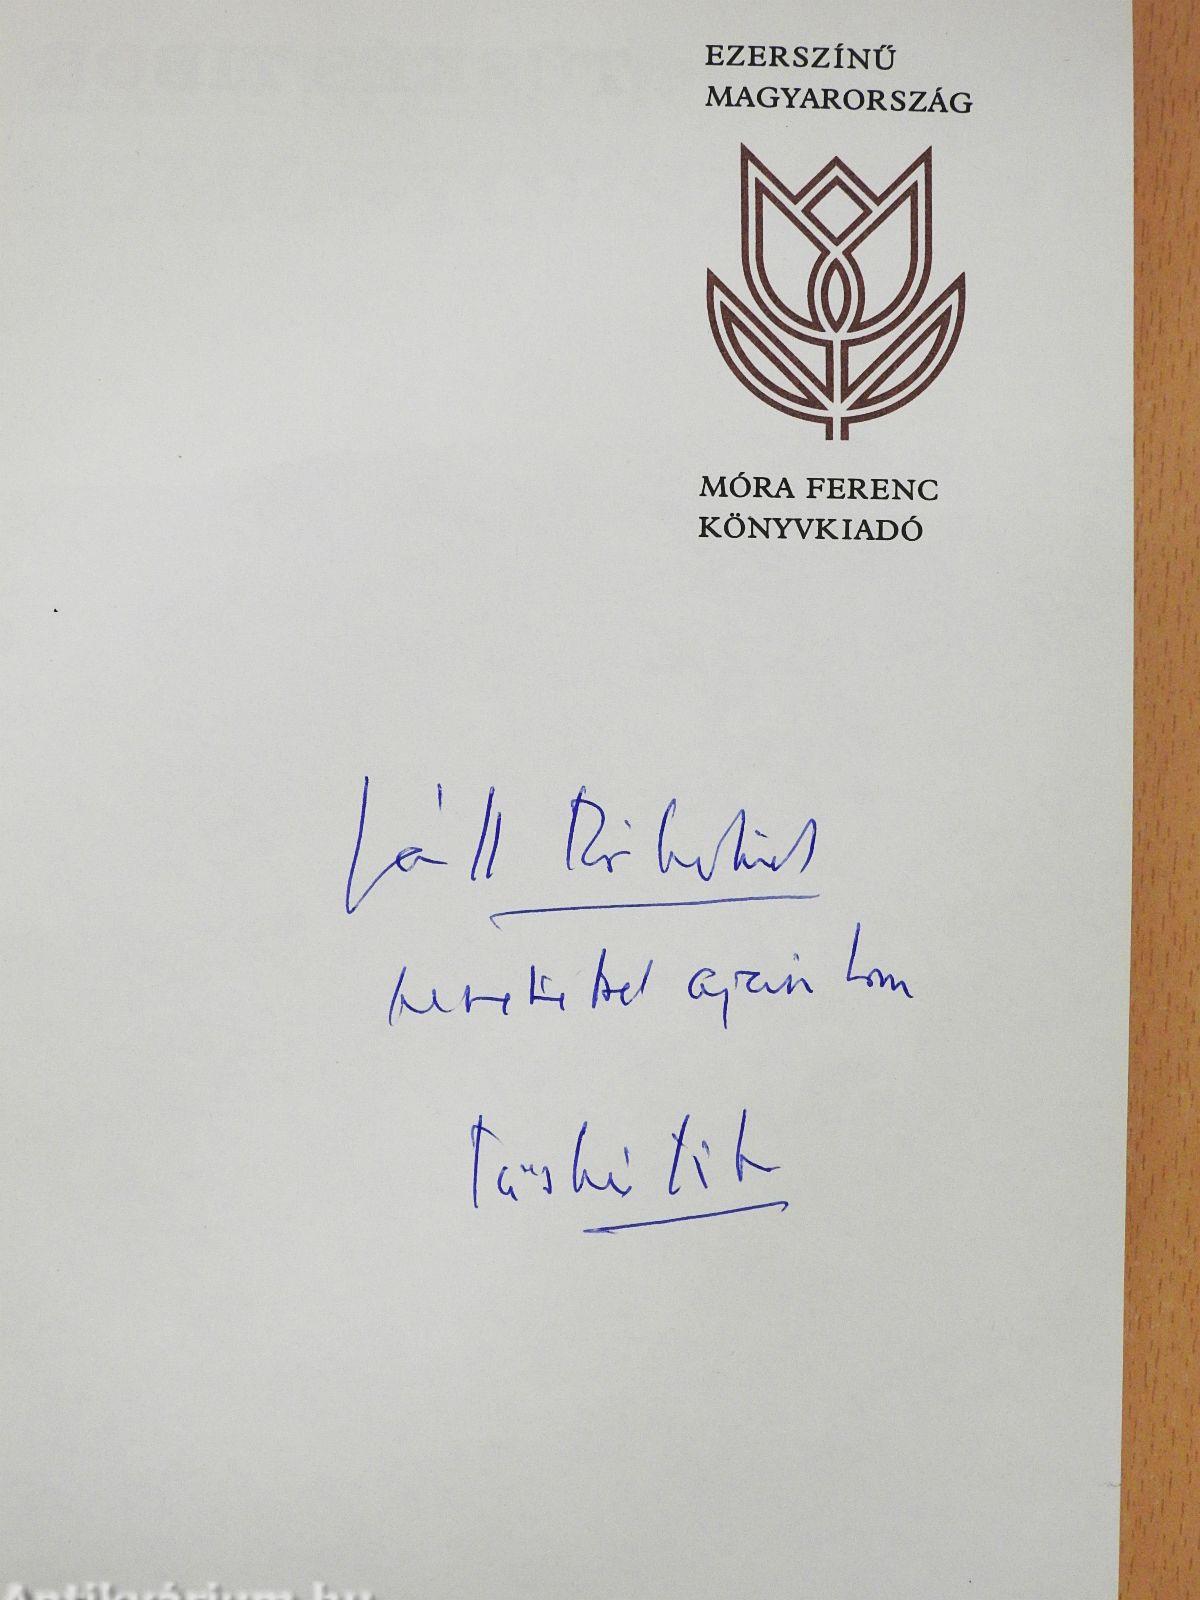 EZERSZÍNŰ
MAGYARORSZÁG
MÓRA FERENC
KÖNYVKIADÓ
Gáll Róbertnek
szeretettel ajánlom
Antikvárium.hu